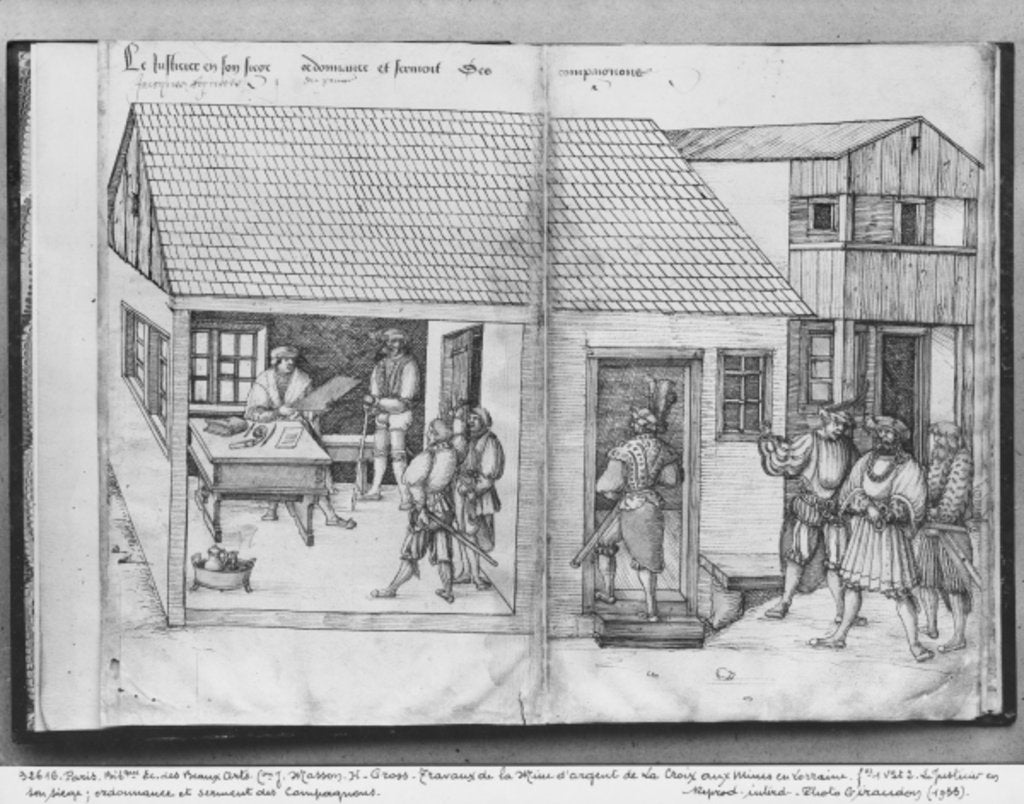 Le Justicier en son siege ordonnance et serment Des compaignons
32616. Paris. Bibque Ec. des Beaux Arts. (on J. Masson. H. Gross - Travaux de la Mine d'argent de La Croix aux Mines en Lorraine. fos 1 Vo et 2. Le Justicier en
son siege ; ordonnance et serment des Compagnons. Reprod. interd. - Photo Giraudon (1933).